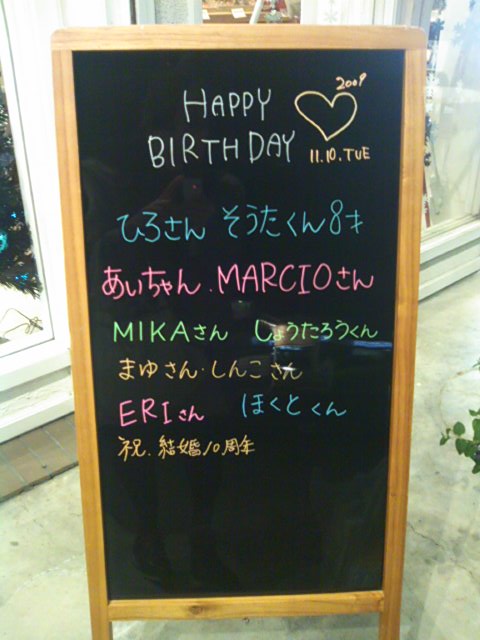 HAPPY
BIRTHDAY
2009
11.10.TUE
ひろさん そうたくん8才
あいちゃん.MARCIOさん
MIKAさん しょうたろうくん
まゆさん・しんこさん
ERIさん ほくとくん
祝.結婚10周年